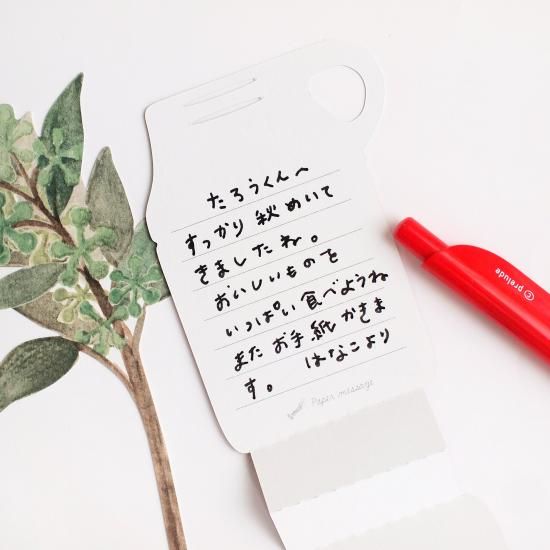 たろうくんへ
すっかり秋めいて
きましたね。
おいしいものを
いっぱい食べようね
またお手紙かきま
す。 はなこより
Paper message
prelude